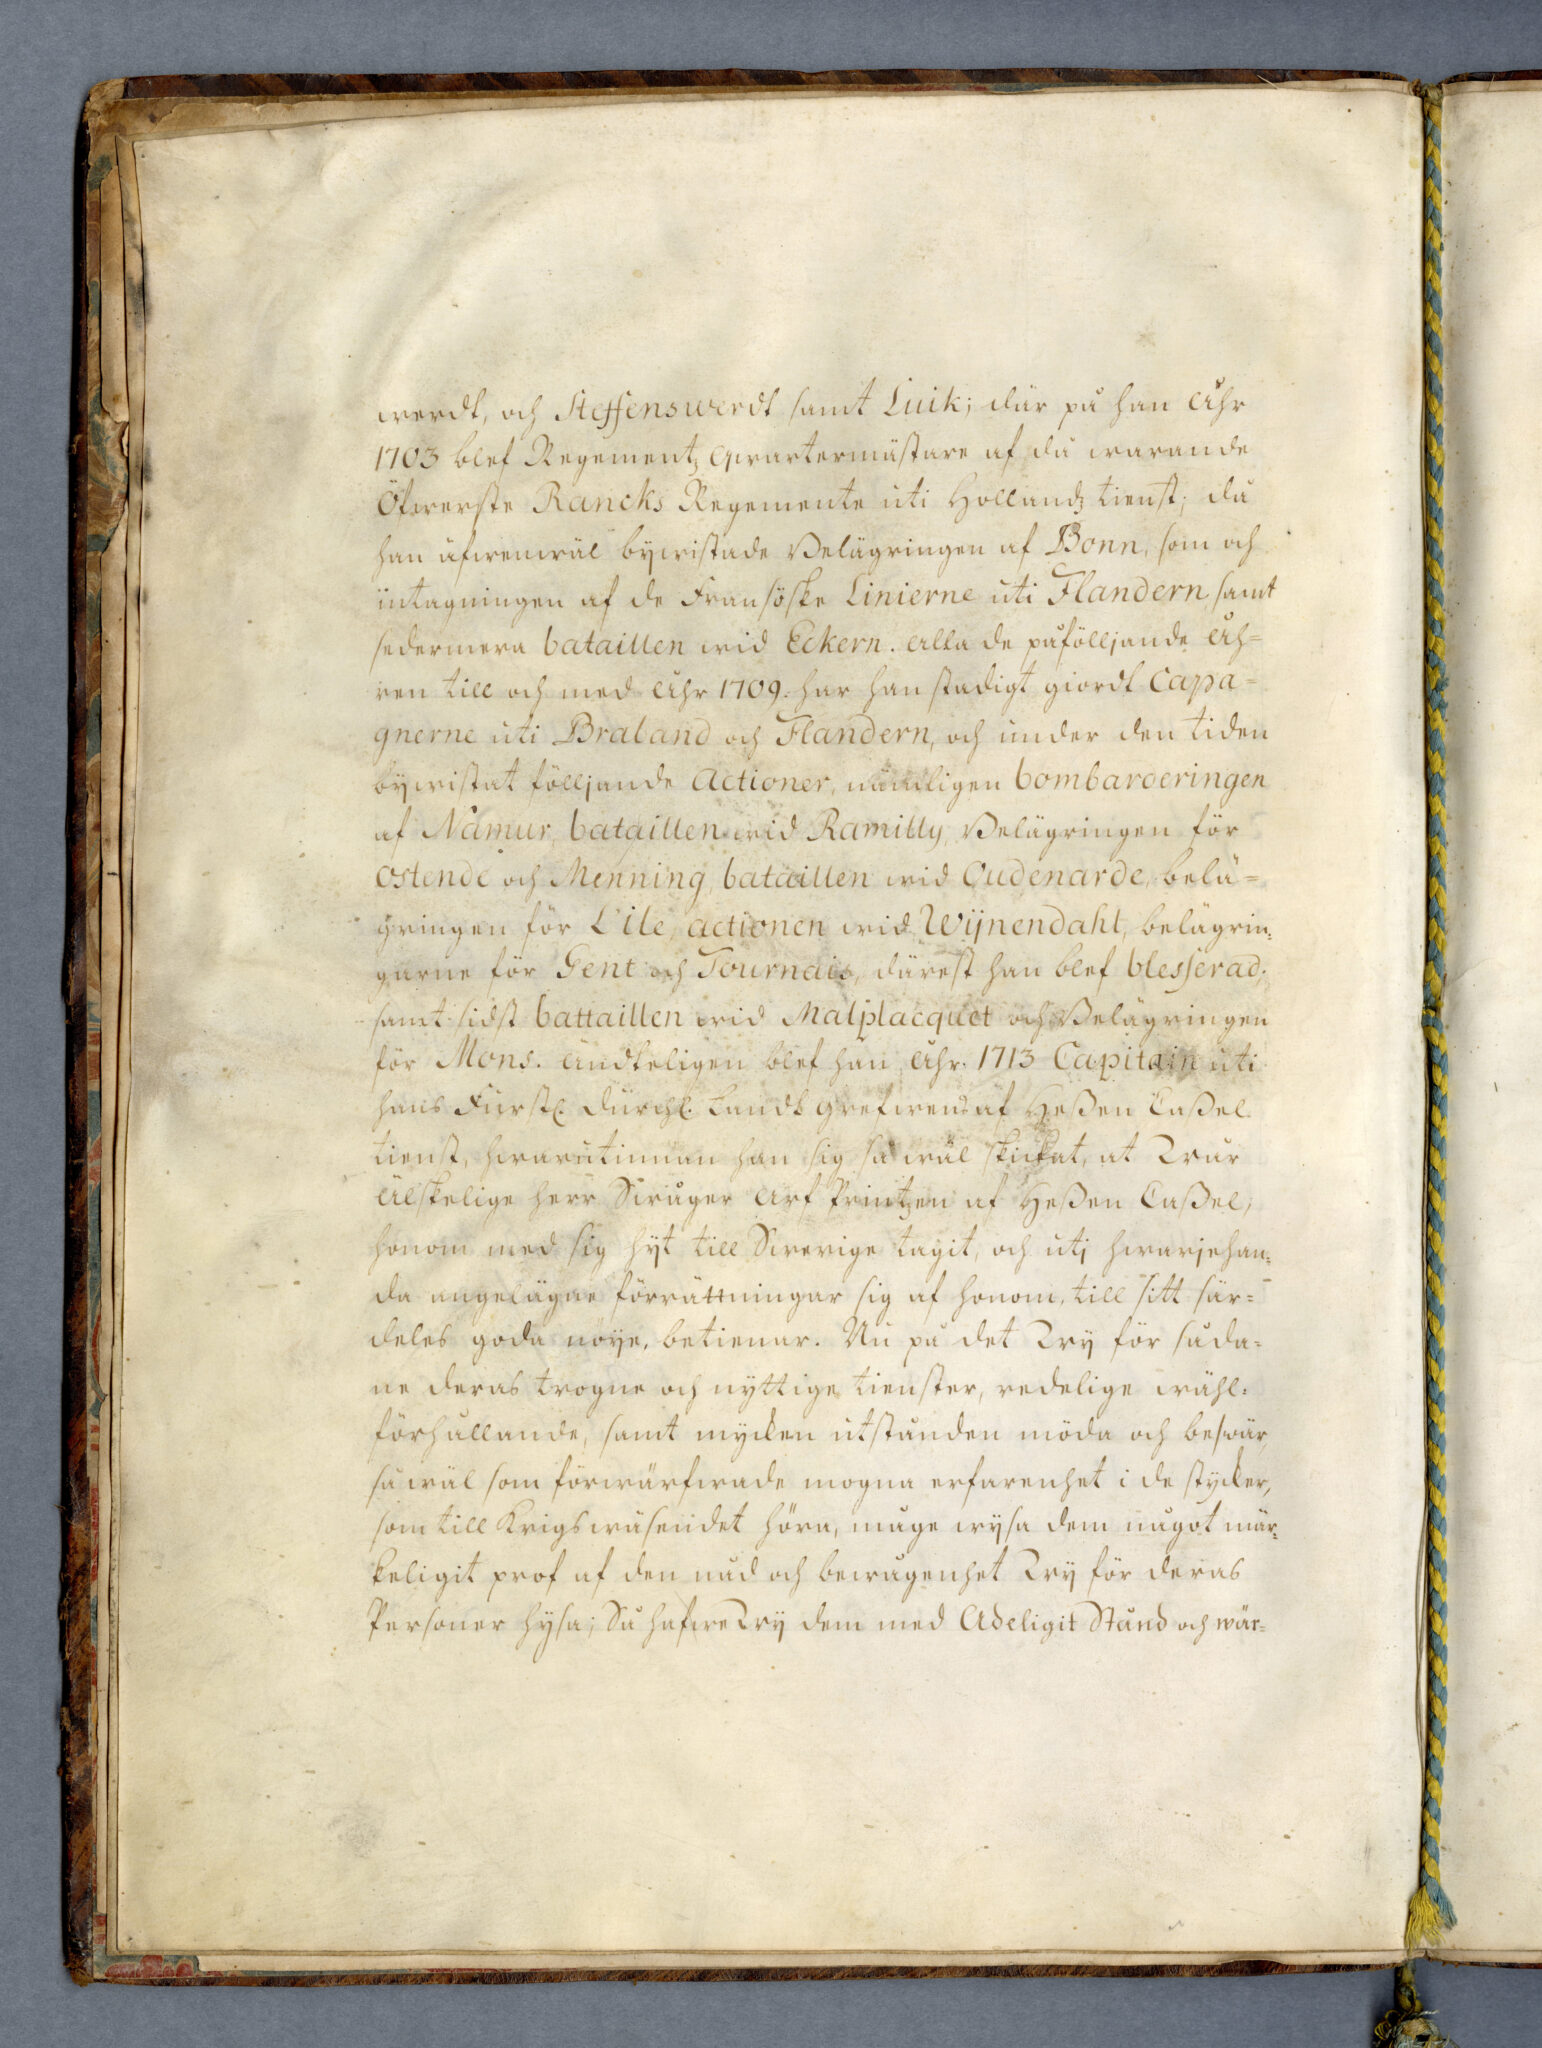 werdt, och Steffenswerdt samt Luik; där på han Åhr
1703 blef Regementz Qwartermästare af då warande
Öfwerste Rancks Regemente uti Hollandz tienst; då
han äfwenwäl bywistade Belägringen af Bonn, som och
intagningen af de Fransöske Linierne uti Flandern samt
sedermera bataillen wid Eckern. Alla de påfölljande Åh=
ren till och med Åhr 1709. har han stadigt giordt Capa=
gnerne uti Braband och Flandern, och under den tiden
bywistat fölljande Actioner, nämligen bombarderingen
af Namur, bataillen wid Ramilly, Belägringen för
Ostende och Menning, bataillen wid Oudenarde, belä=
gringen för L'ile, actionen wid Wijnendahl, belägrin=
garne för Gent och Tournais, därest han blef blesserad;
samt sidst battaillen wid Malplacquet och Belägringen
för Mons. Ändteligen blef han Åhr 1713 Capitain uti
hans Fürstl. Dürchl. Landt Grefwens af Heßen Caßel
tienst, hwarutinnan han sig så wäl skickat, at Wår
Älskelige herr Swåger Arf Printzen af Heßen Caßel,
honom med sig hyt till Swerige tagit, och utj hwarjehan=
da angelägne förrättningar sig af honom, till sitt sär=
deles goda nöye, betienar. Nu på det Wy för såda=
ne deras trogne och nyttige tienster, redelige wähl=
förhållande, samt mycken utstånden möda och beswär,
så wäl som förwärfwade mogna erfarenhet i de stycker,
som till Krigswäsendet höra, måge wysa dem något mär=
keligit prof af den nåd och bewågenhet Wy för deras
Personer hysa; Så hafwe Wy dem med Adeligit Stånd och wär=